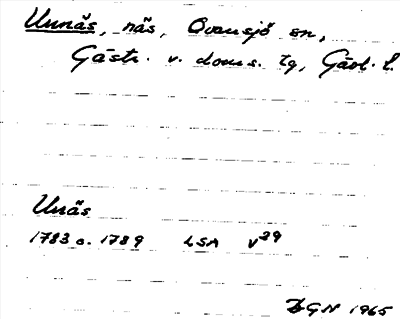 Unnäs, näs, Ovansjö sn,
Gästr. v. doms. tg, Gävl. l.
Unäs
1783 o. 1789 LSA V29
1965